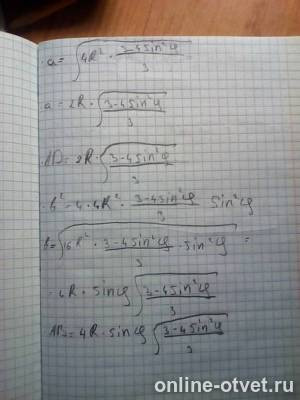 a = √(4R² · (3-4sin²φ)/3)
a = 2R · √((3-4sin²φ)/3)
AD = 2R · √((3-4sin²φ)/3)
b² = 4 · 4R² · (3-4sin²φ)/3 sin²φ
b = √(16R² · (3-4sin²φ)/3 · sin²φ) =
= 4R · sinφ √((3-4sin²φ)/3)
AB = 4R · sinφ √((3-4sin²φ)/3)
online-otvet.ru